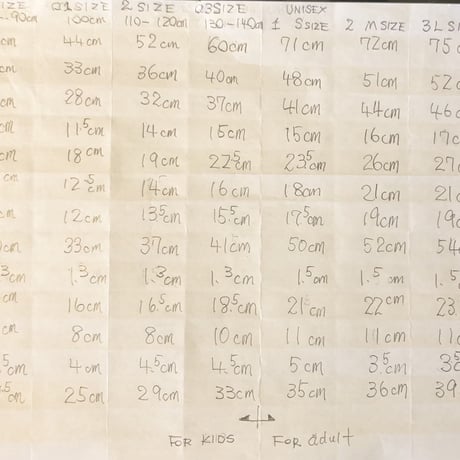 SIZE 01SIZE 2 SIZE 03SIZE UNISEX
90cm 100cm 110-120cm 130-140cm 1 SSIZE 2 MSIZE 3 L
cm 44cm 52cm 60cm 71cm 72cm 75c
cm 33cm 36cm 40cm 48cm 51cm 52c
cm 28cm 32cm 37cm 41cm 44cm 46c
cm 11.5cm 14cm 15cm 15cm 16cm 17c
cm 18cm 19cm 22.5cm 23.5cm 26cm 27
cm 12.5cm 14cm 16cm 18cm 21cm 21c
cm 12cm 13.5cm 15.5cm 17.5cm 19cm 19c
cm 33cm 37cm 41cm 50cm 52cm 54
.3cm 1.3cm 1.3cm 1.3cm 1.5cm 1.5cm 1.5
cm 16cm 16.5cm 18.5cm 21cm 22cm 23.
cm 8cm 8cm 10cm 11cm 11cm 11
.5cm 4cm 4.5cm 4.5cm 5cm 3.5cm
.5cm 25cm 29cm 33cm 35cm 36cm 39
FOR KIDS FOR adult